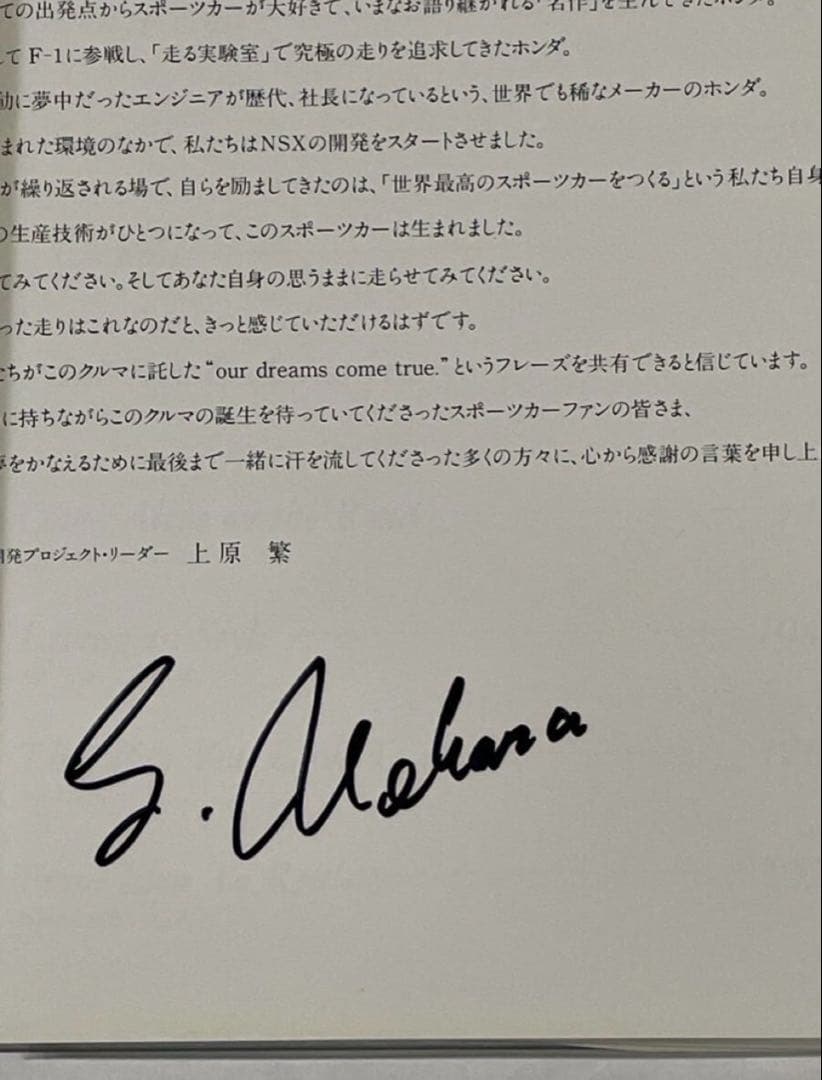 ての出発点からスポーツカーが大好きで、いまなお語り継がれる「名作」を生んできたホンダ。
してF-1に参戦し、「走る実験室」で究極の走りを追求してきたホンダ。
動に夢中だったエンジニアが歴代、社長になっているという、世界でも稀なメーカーのホンダ。
まれた環境のなかで、私たちはNSXの開発をスタートさせました。
が繰り返される場で、自らを励ましてきたのは、「世界最高のスポーツカーをつくる」という私たち自身
の生産技術がひとつになって、このスポーツカーは生まれました。
てみてください。そしてあなた自身の思うままに走らせてみてください。
った走りはこれなのだと、きっと感じていただけるはずです。
たちがこのクルマに託した“our dreams come true.”というフレーズを共有できると信じています。
に持ちながらこのクルマの誕生を待っていてくださったスポーツカーファンの皆さま、
夢をかなえるために最後まで一緒に汗を流してくださった多くの方々に、心から感謝の言葉を申し上
開発プロジェクト・リーダー 上原 繁
S. Uehara